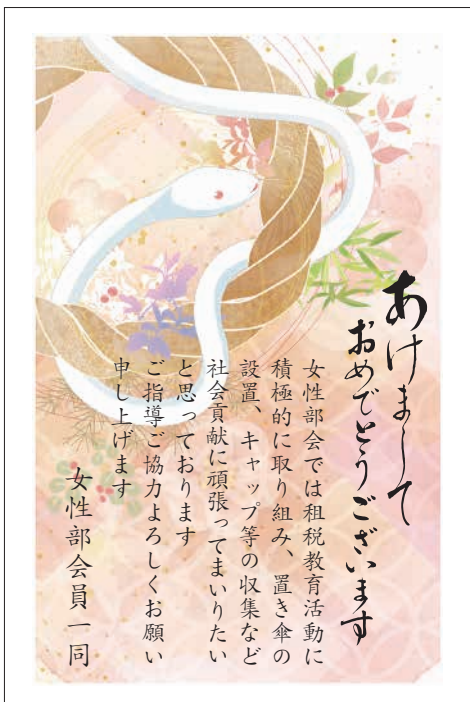 あけまして
おめでとうございます
女性部会では租税教育活動に
積極的に取り組み、置き傘の
設置、キャップ等の収集など
社会貢献に頑張ってまいりたい
と思っております
ご指導ご協力よろしくお願い
申し上げます
女性部会員一同